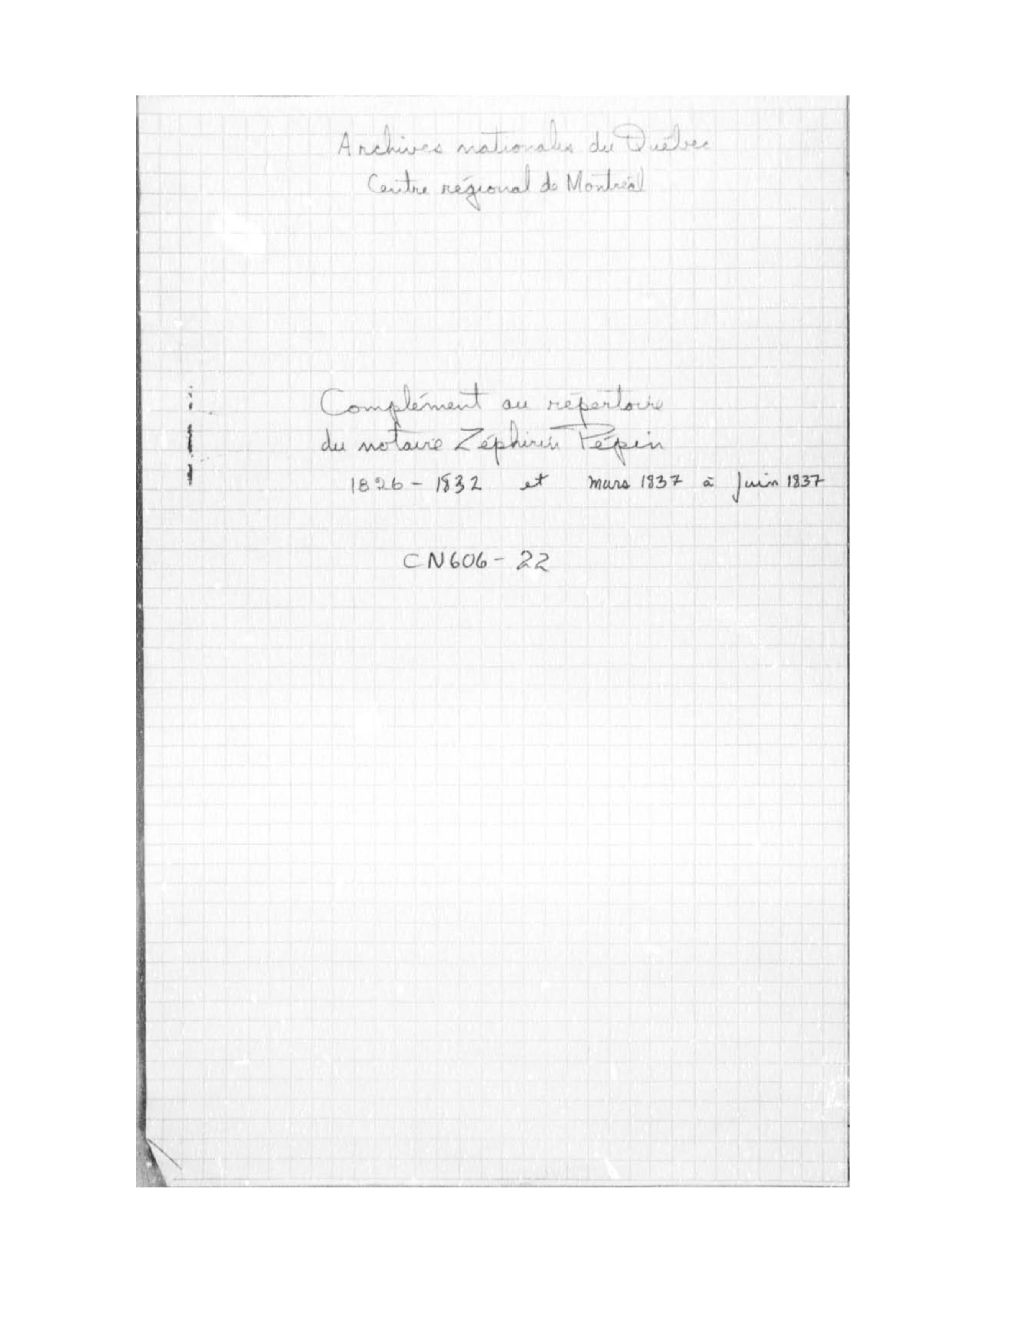 Archives nationales du Québec
Centre régional de Montréal
Complément au répertoire
du notaire Zéphirin Pépin
1826 - 1832 et mars 1837 à Juin 1837
CN606-22